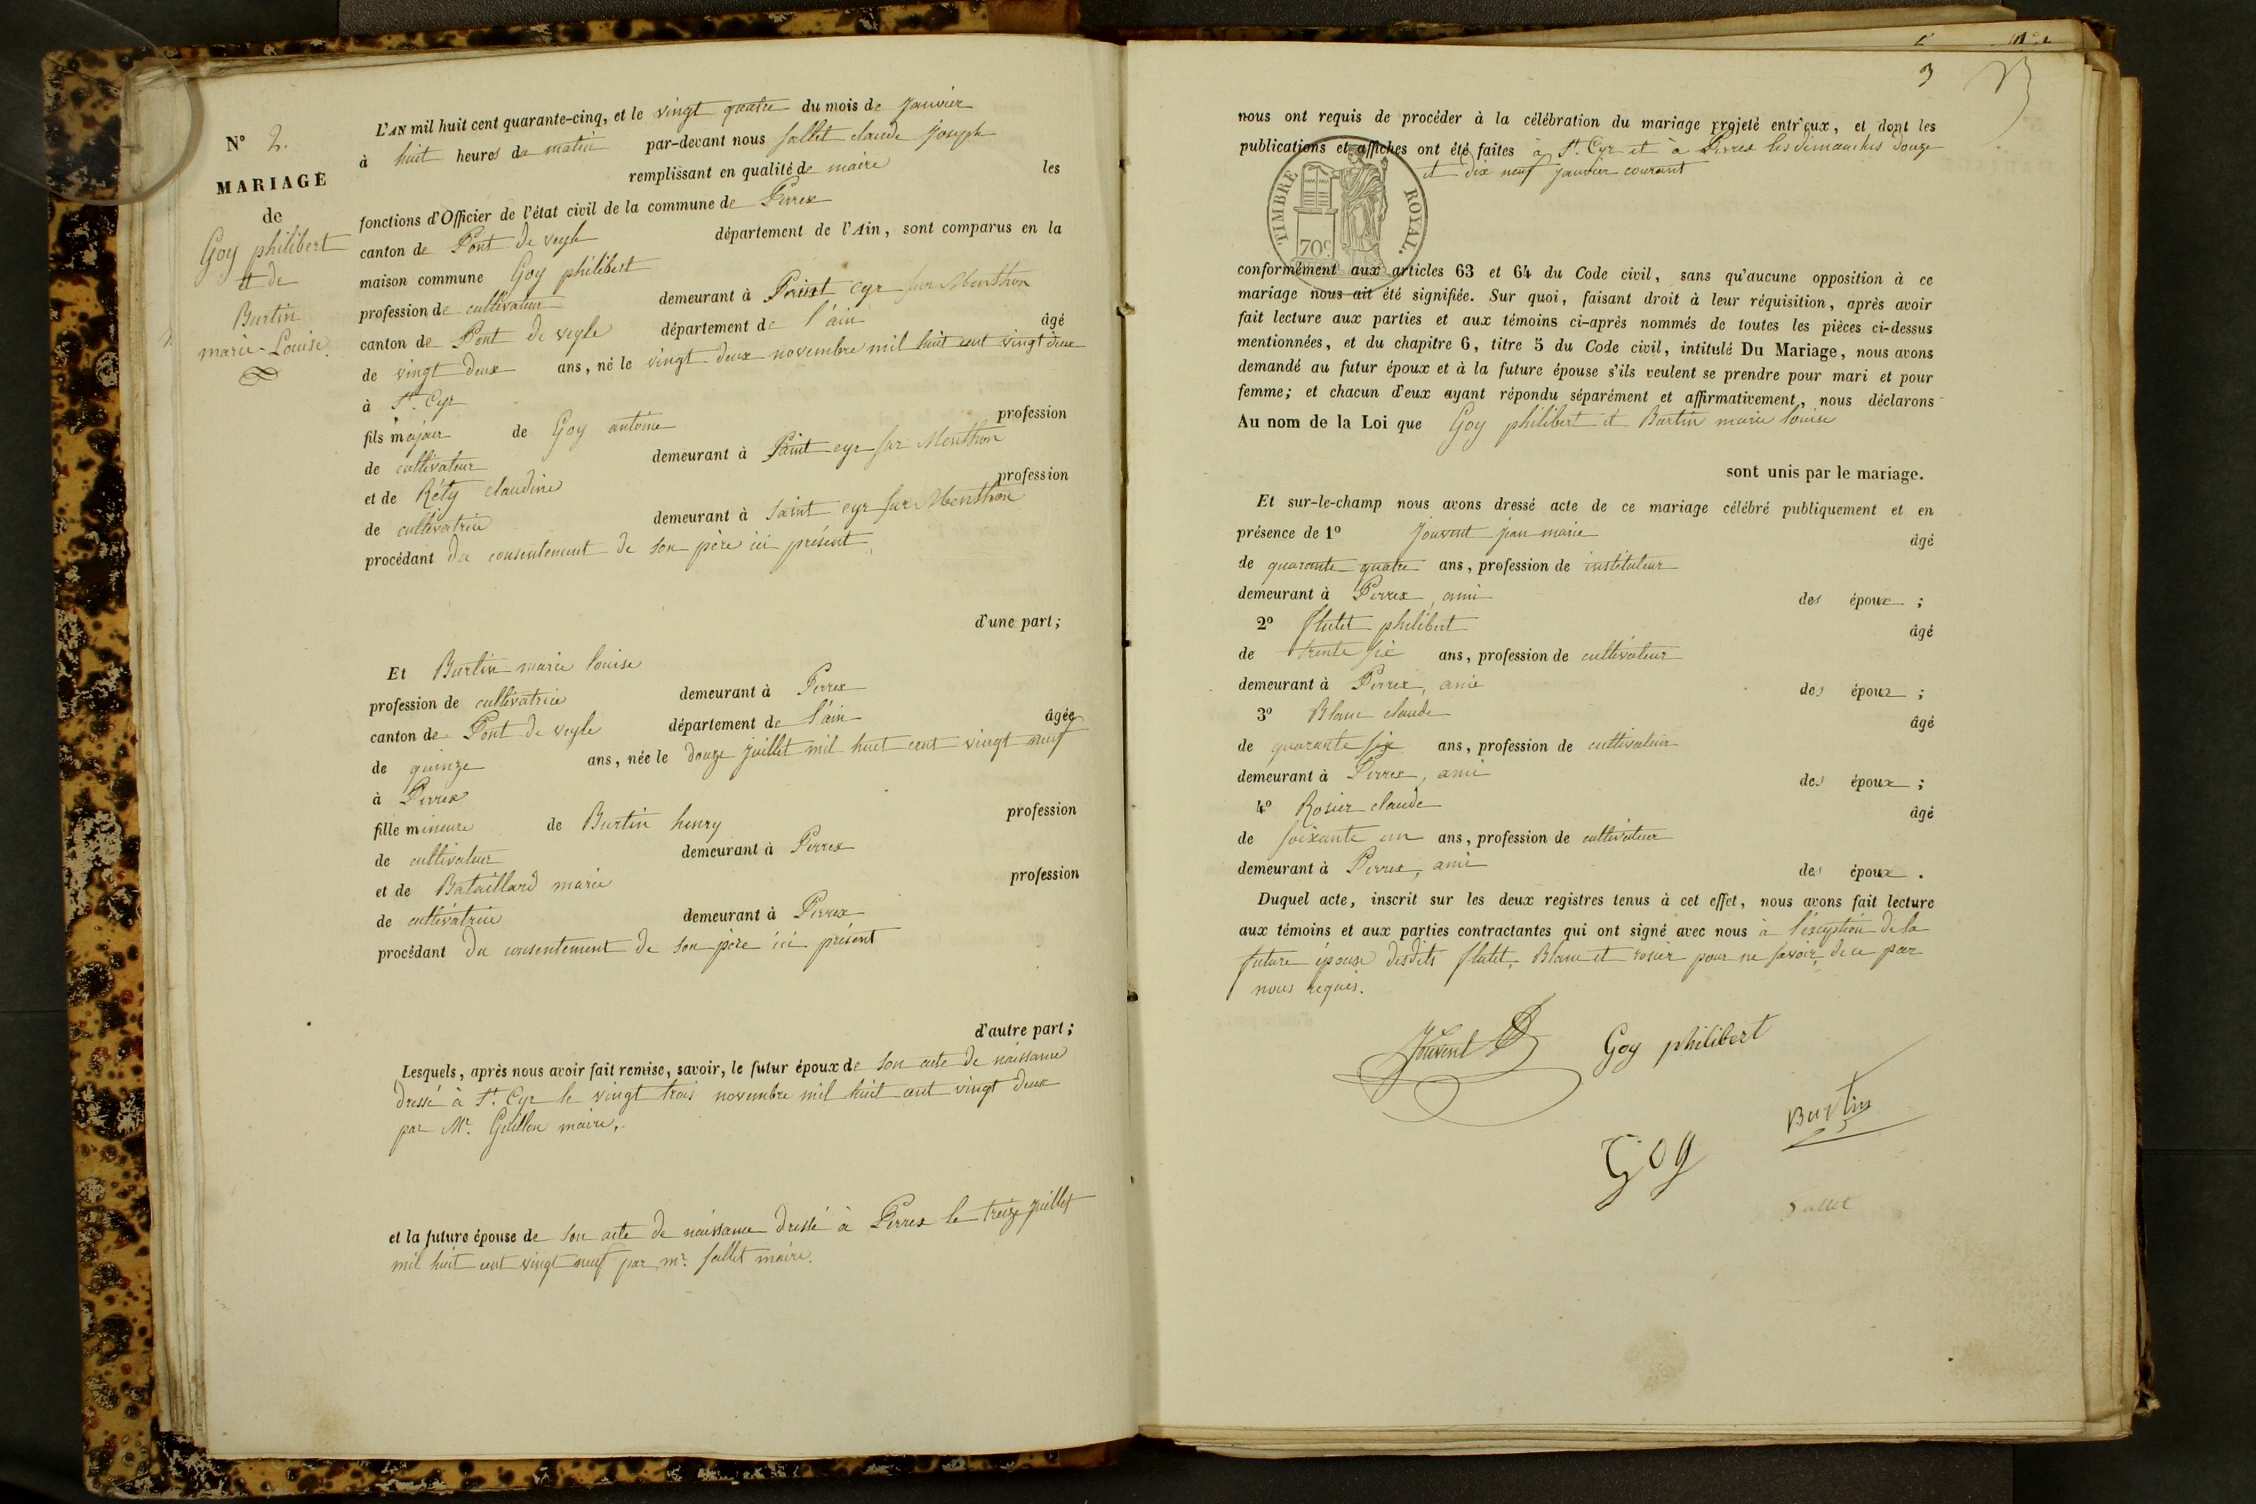 N° 2.
MARIAGE
de
Goy philibert
et de
Burtin
marie-Louise.
L'AN mil huit cent quarante-cinq, et le vingt quatre du mois de janvier
à huit heures du matin par-devant nous sallet claude joseph
remplissant en qualité de maire les
fonctions d'Officier de l'état civil de la commune de Perrex
canton de Pont de veyle département de l'Ain, sont comparus en la
maison commune Goy philibert
profession de cultivateur demeurant à Saint Cyr sur Menthon
canton de Pont de veyle département de l'ain âgé
de vingt deux ans, né le vingt deux novembre mil huit cent vingt deux
à St. Cyr
fils majeur de Goy antoine profession
de cultivateur demeurant à Saint cyr sur Menthon
et de Réty claudine profession
de cultivatrice demeurant à saint cyr sur Menthon
procédant du consentement de son père ici présent
d'une part;
Et Burtin marie louise
profession de cultivatrice demeurant à Perrex
canton de Pont de veyle département de l'ain âgée
de quinze ans, née le douze juillet mil huit cent vingt neuf
à Perrex
fille mineure de Burtin henry profession
de cultivateur demeurant à Perrex
et de Bataillard marie profession
de cultivatrice demeurant à Perrex
procédant du consentement de son père ici présent
d'autre part;
Lesquels, après nous avoir fait remise, savoir, le futur époux de son acte de naissance
dressé à St. Cyr le vingt trois novembre mil huit cent vingt deux
par Mr. maire,
et la future épouse de son acte de naissance dressé à Perrex le treize juillet
mil huit cent vingt neuf par mr. sallet maire.
3
nous ont requis de procéder à la célébration du mariage projeté entr'eux, et dont les
publications et affiches ont été faites à St. Cyr et à Perrex les dimanches douze
et dix neuf janvier courant
TIMBRE ROYAL.
70c
conformément aux articles 63 et 64 du Code civil, sans qu'aucune opposition à ce
mariage nous ait été signifiée. Sur quoi, faisant droit à leur réquisition, après avoir
fait lecture aux parties et aux témoins ci-après nommés de toutes les pièces ci-dessus
mentionnées, et du chapitre 6, titre 5 du Code civil, intitulé Du Mariage, nous avons
demandé au futur époux et à la future épouse s'ils veulent se prendre pour mari et pour
femme; et chacun d'eux ayant répondu séparément et affirmativement, nous déclarons
Au nom de la Loi que Goy philibert et Burtin marie louise
sont unis par le mariage.
Et sur-le-champ nous avons dressé acte de ce mariage célébré publiquement et en
présence de 1° Jouvent jean marie âgé
de quarante quatre ans, profession de instituteur
demeurant à Perrex, ami des époux ;
2° flutet philibert âgé
de trente six ans, profession de cultivateur
demeurant à Perrex, ami des époux ;
3° Blanc claude âgé
de quarante six ans, profession de cultivateur
demeurant à Perrex, ami des époux ;
4° Rosier claude âgé
de soixante un ans, profession de cultivateur
demeurant à Perrex, ami des époux .
Duquel acte, inscrit sur les deux registres tenus à cet effet, nous avons fait lecture
aux témoins et aux parties contractantes qui ont signé avec nous à l'exception de la
future épouse desdits flutet, Blanc et rosier pour ne savoir, de ce par
nous requis.
Jouvent
Goy philibert
Burtin
Goy
Sallet